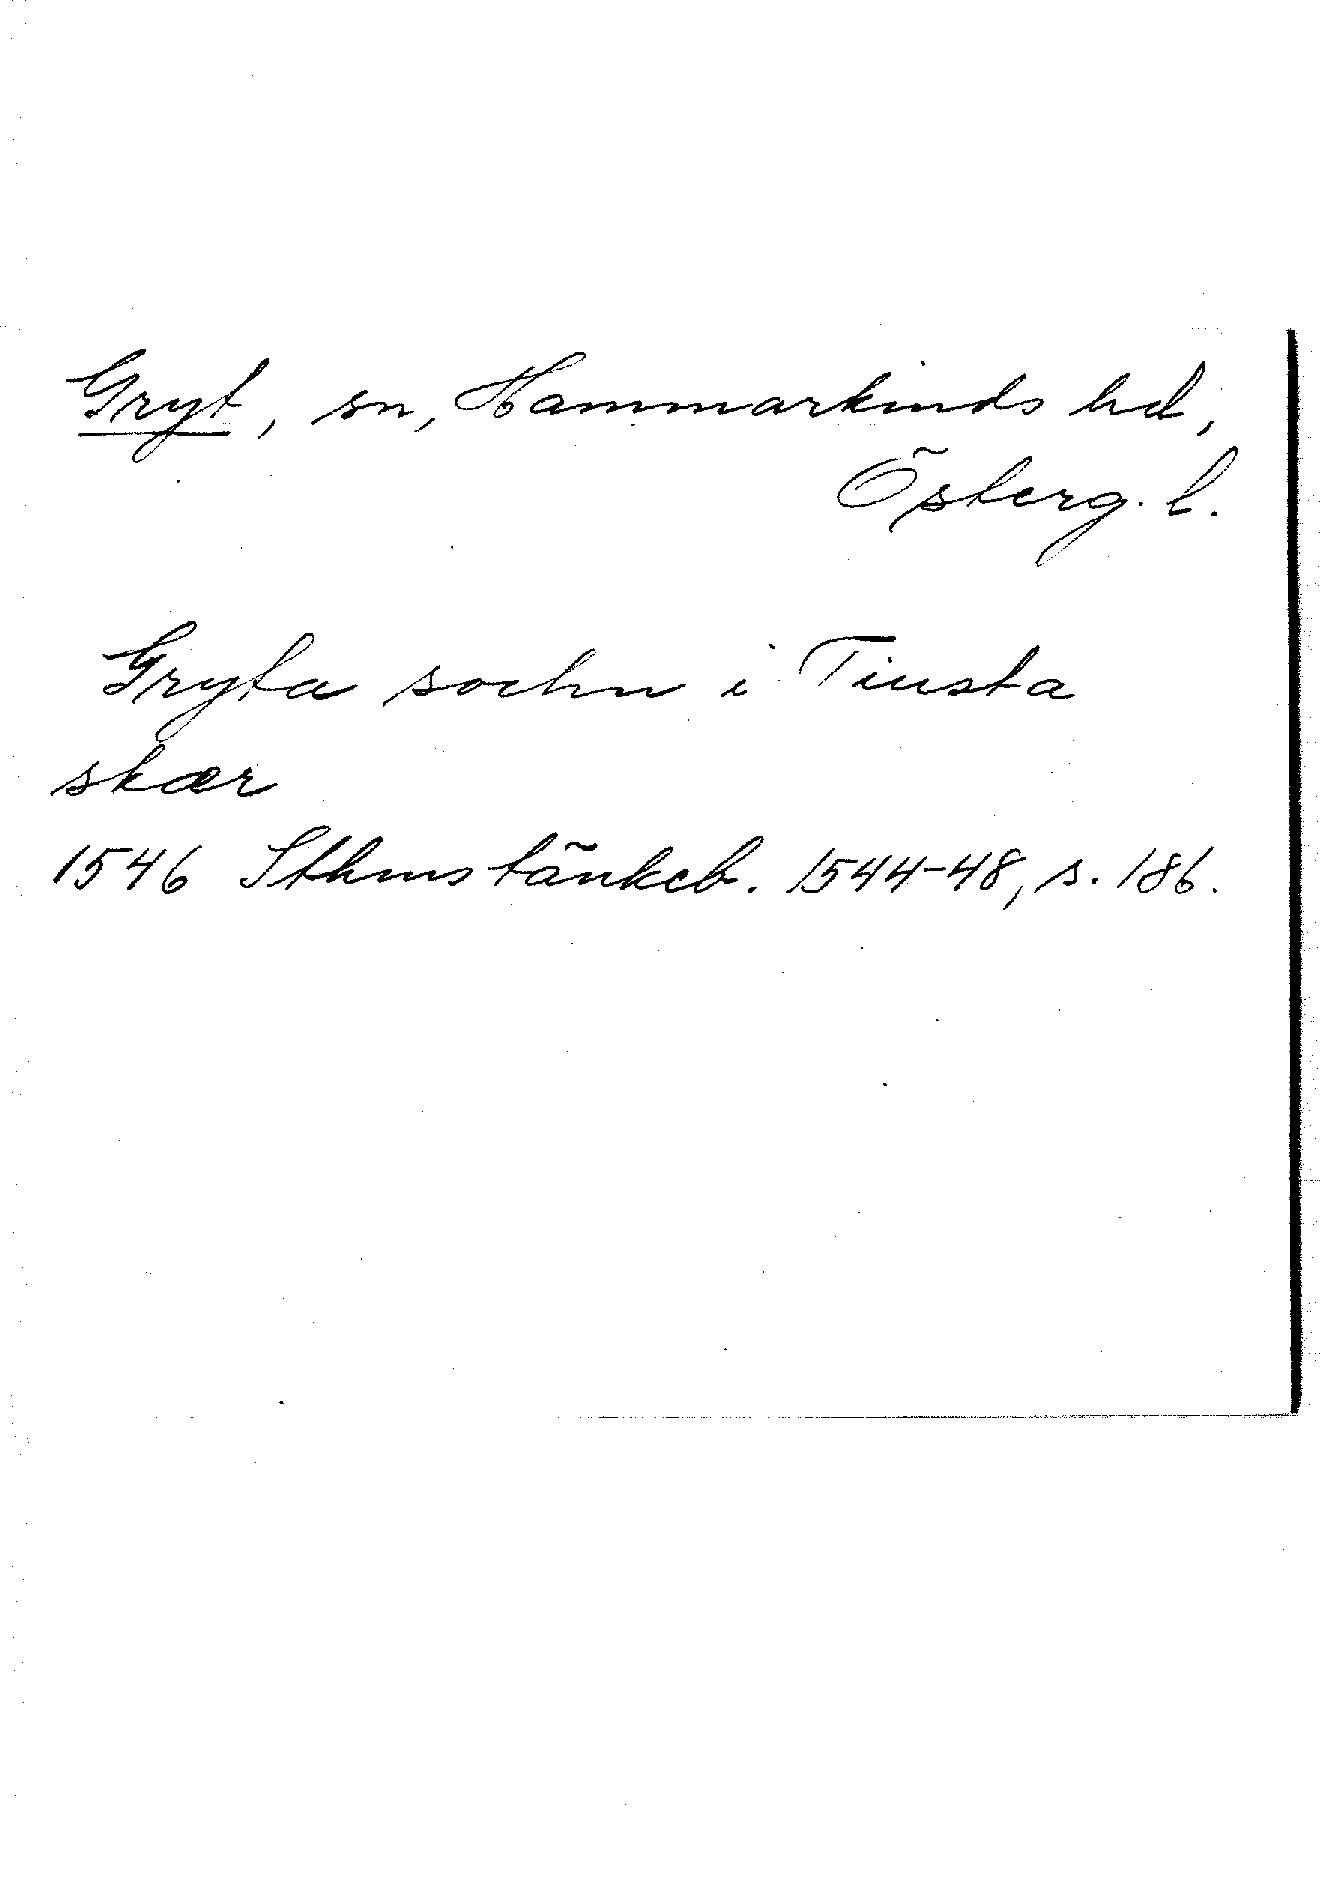 Gryt, sn, Hammarkinds hd,
Österg. l.
Gryta sochn i Tiusta
skær
1546 Sthms tänkeb. 1544-48, s. 186.